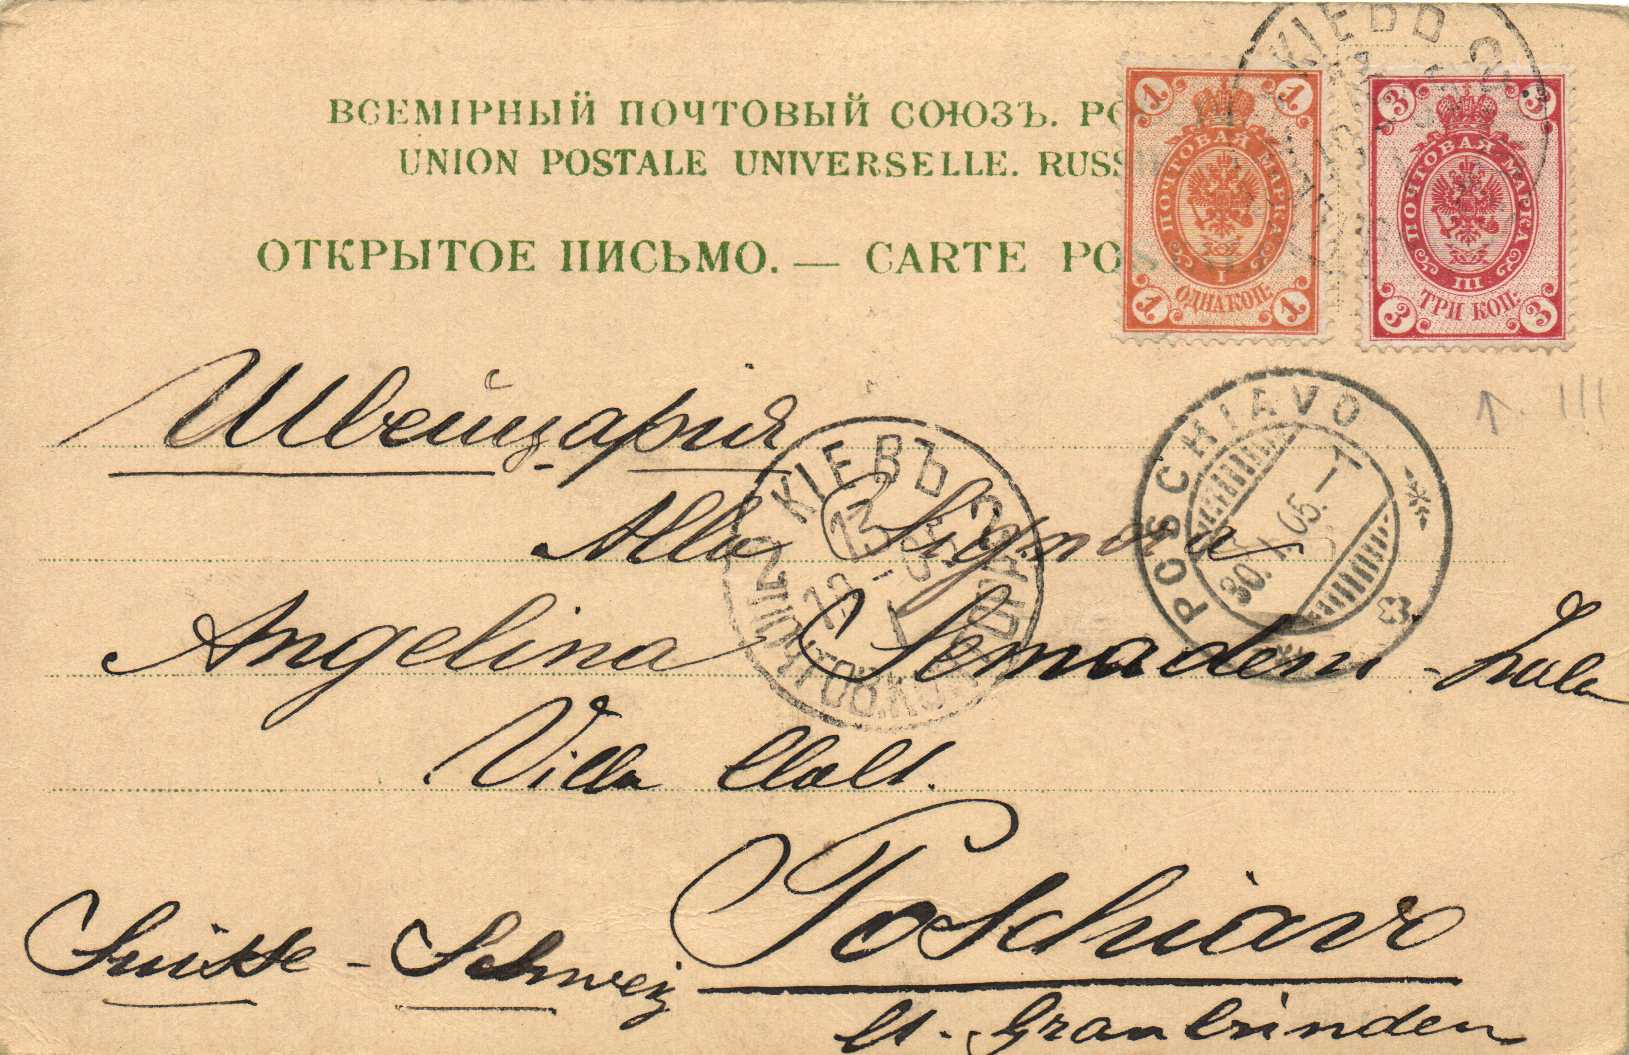 ВСЕМІРНЫЙ ПОЧТОВЫЙ СОЮЗЪ. РО
UNION POSTALE UNIVERSELLE. RUSS
ОТКРЫТОЕ ПИСЬМО. — CARTE PO
1 1
ПОЧТОВАЯ МАРКА
I
ОДНА КОП.
1 1
3 3
ПОЧТОВАЯ МАРКА
III
ТРИ КОП.
3 3
КІЕВЪ 2
Швейцарія
КІЕВЪ 2
13
1
POSCHIAVO
30.I.05.-1
Alla Signora
Angelina Semadeni - Zala
Villa
Poschiavo
Suisse - Schweiz
Ct. Graubünden